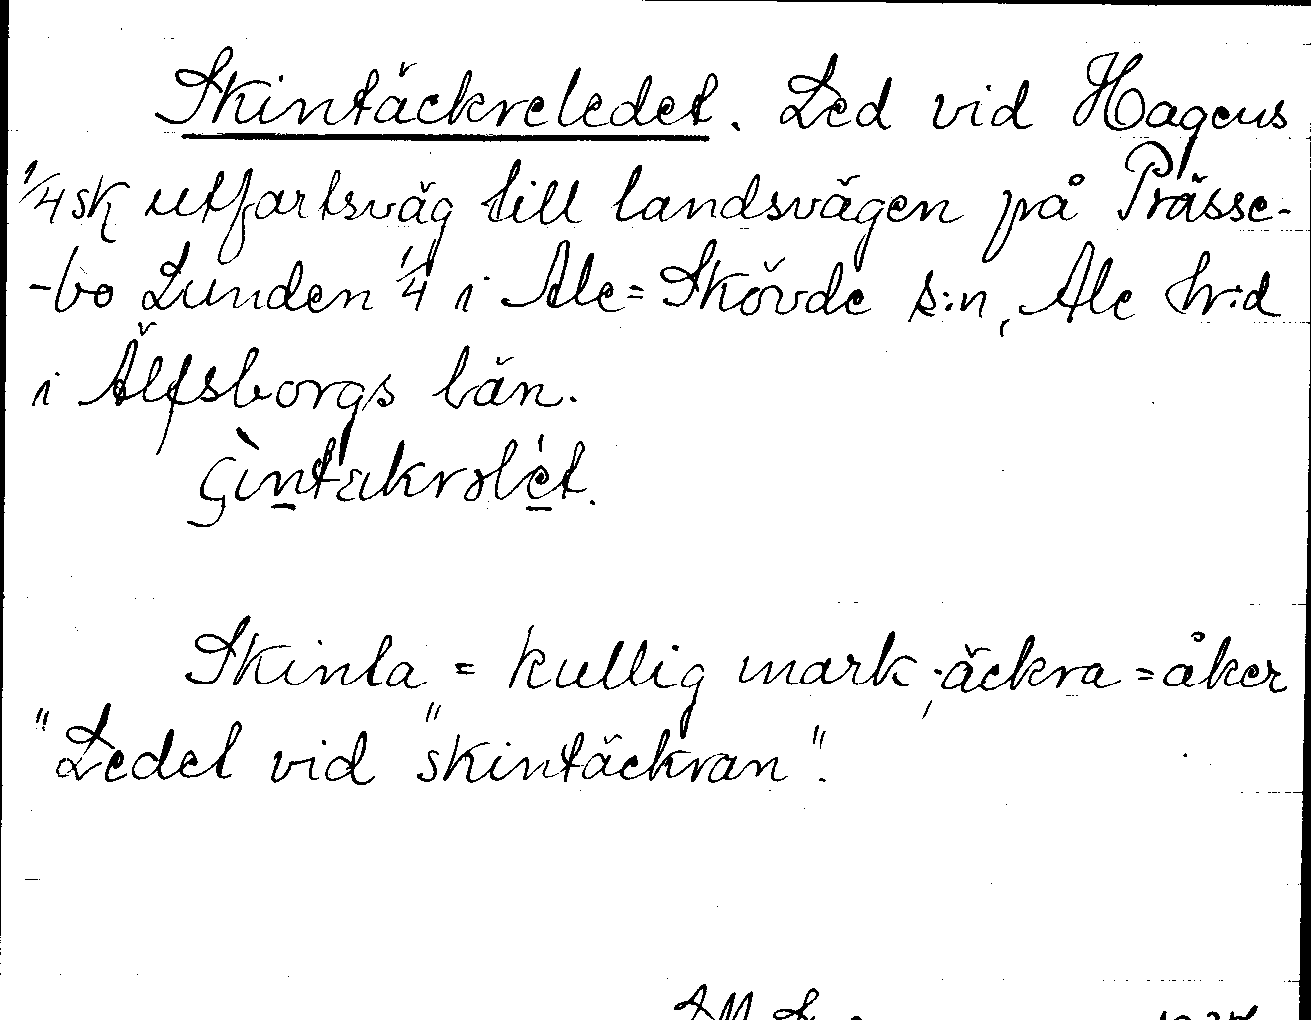 Skintäckreledet. Led vid Hagens
1/4 sk utfartsväg till landsvägen på Prässe-
-bo Lunden 1/4 i Ale=Skövde s:n, Ale hrd
i Älfsborgs län.
Skinta = kullig mark, äckra = åker
"Ledet vid "skintäckran".